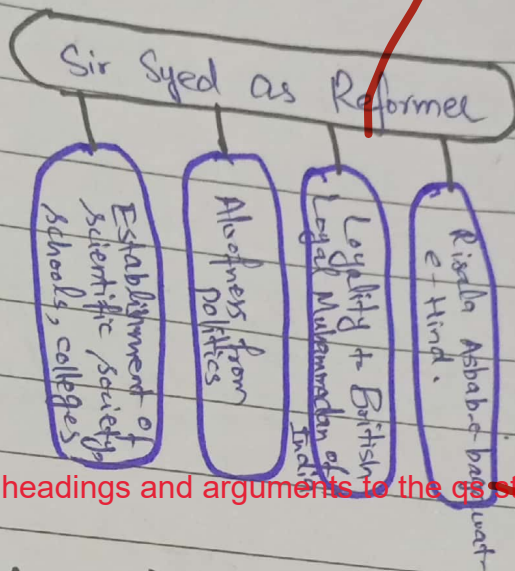 Sir Syed as Reformer
Establishment of
scientific society,
schools, colleges
Aloofness from
politics
Loyality to British
Loyal Muhammadan of
India
Risala Asbab-e-
e-Hind.
headings and arguments to the qs st